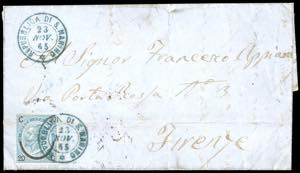 REPUBBLICA DI S. MARINO
23
NOV.
65
Al Signor Francesco Appiani
Via Porta Rossa N° 3
Firenze
C
20
REPUBBLICA DI S. MARINO
23
NOV
65